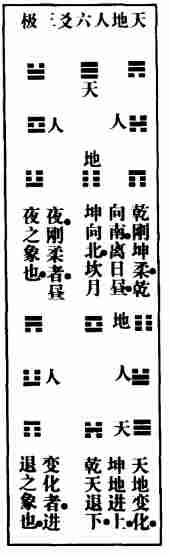 天地人六爻三极
人
天
地
人
乾刚坤柔乾
向南离日昼
坤向北坎月
夜刚柔者昼
夜之象也
地
人
天
人
天地变化
坤地进上
乾天退下
变化者进
退之象也